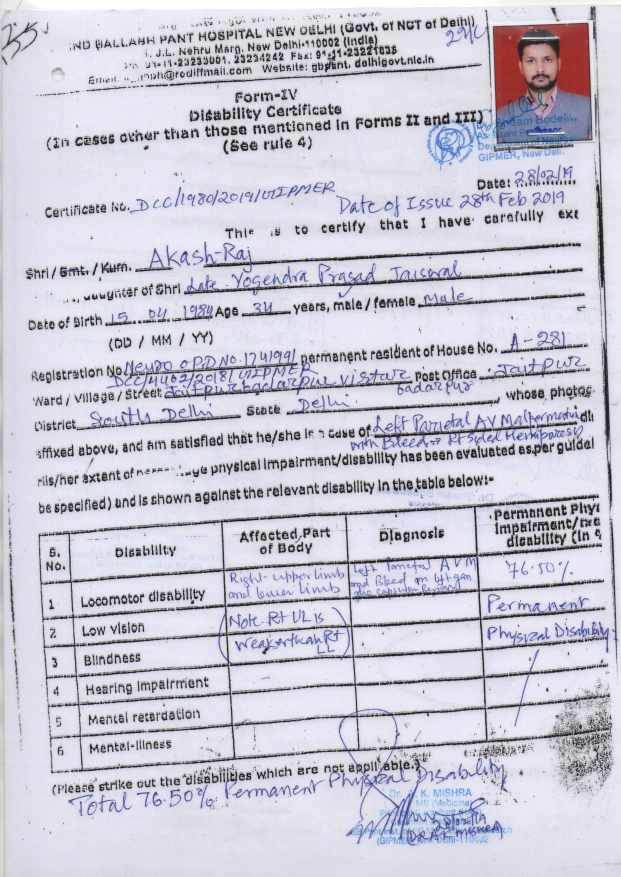 35
IND BALLABH PANT HOSPITAL NEW DELHI (Govt. of NCT of Delhi)
1, J.L. Nehru Marg, New Delhi-110002 (India)
Ph. 91-11-23233001, 23234242 Fax: 91-11-23221635
@rediffmail.com Website: gbpant.delhigovt.nic.in
Form-IV
Disability Certificate
(In cases other than those mentioned in Forms II and III)
(See rule 4)
GIPMER, New Del
Date: 28/02/19
Certificate No. DCC/1980/2019/GIPMER Date of Issue 28th Feb 2019
This is to certify that I have carefully exa
Shri / Smt. / Kum. Akash-Raj
daughter of Shri Late Yogendra Prasad Jaiswal
Date of Birth 15 04 1984 Age 34 years, male / female Male
(DD / MM / YY)
Registration No. Neuro OPD No. 174991 permanent resident of House No. A-281
DCC/4462/2018/GIPMER
Ward / Village / Street Jaitpur badarpur vistar Post Office Jaitpur
badarpur
District South Delhi State Delhi, whose photog
affixed above, and am satisfied that he/she is a case of Left Parietal AV Malformation di
with Bleed Rt Sided Hemiparesis
his/her extent of physical impairment/disability has been evaluated as per guidel
be specified) and is shown against the relevant disability in the table below:-
S. No. Disability Affected Part of Body Diagnosis Permanent Physi impairment/me disability (in %
1 Locomotor disability Right upper limb and lower limb Left Parietal AVM and Bleed 76.50%
2 Low vision Note - Rt UL is Permanent
3 Blindness weaker than Rt LL Physical Disability
4 Hearing impairment
5 Mental retardation
6 Mental-illness
(Please strike out the disabilities which are not applicable.)
Total 76.50% Permanent Physical Disability
K. MISHRA
MD (Medicine)